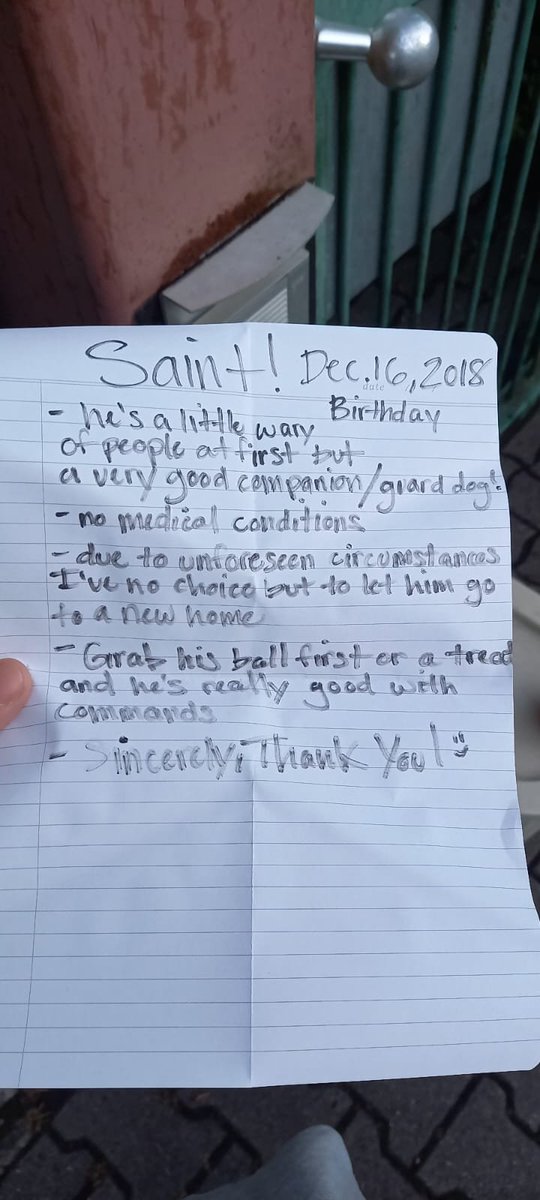 Saint! Dec.16,2018
date
Birthday
- he's a little wary
of people at first but
a very good companion/guard dog!
- no medical conditions
- due to unforeseen circumstances
I've no choice but to let him go
to a new home
- Grab his ball first or a treat
and he's really good with
commands
- Sincerely, Thank You! :)